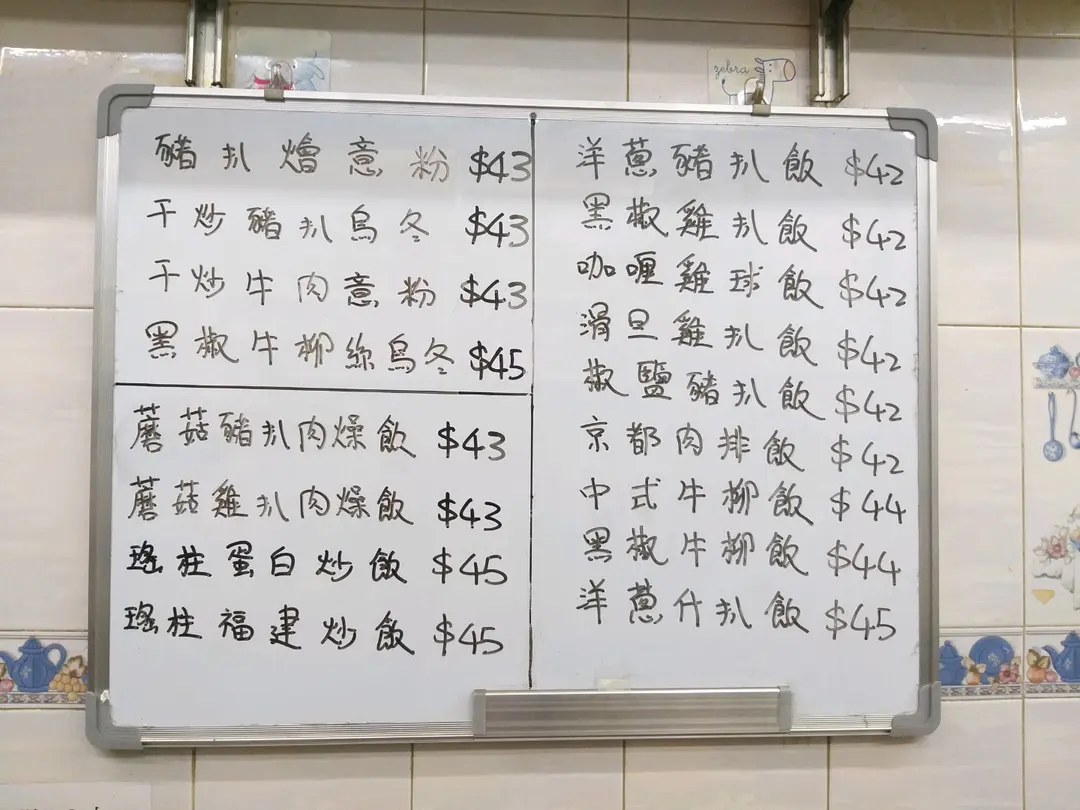 zebra
豬扒燴意粉 $43
干炒豬扒烏冬 $43
干炒牛肉意粉 $43
黑椒牛柳絲烏冬 $45
蘑菇豬扒肉燥飯 $43
蘑菇雞扒肉燥飯 $43
瑤柱蛋白炒飯 $45
瑤柱福建炒飯 $45
洋蔥豬扒飯 $42
黑椒雞扒飯 $42
咖喱雞球飯 $42
滑旦雞扒飯 $42
椒鹽豬扒飯 $42
京都肉排飯 $42
中式牛柳飯 $44
黑椒牛柳飯 $44
洋蔥什扒飯 $45